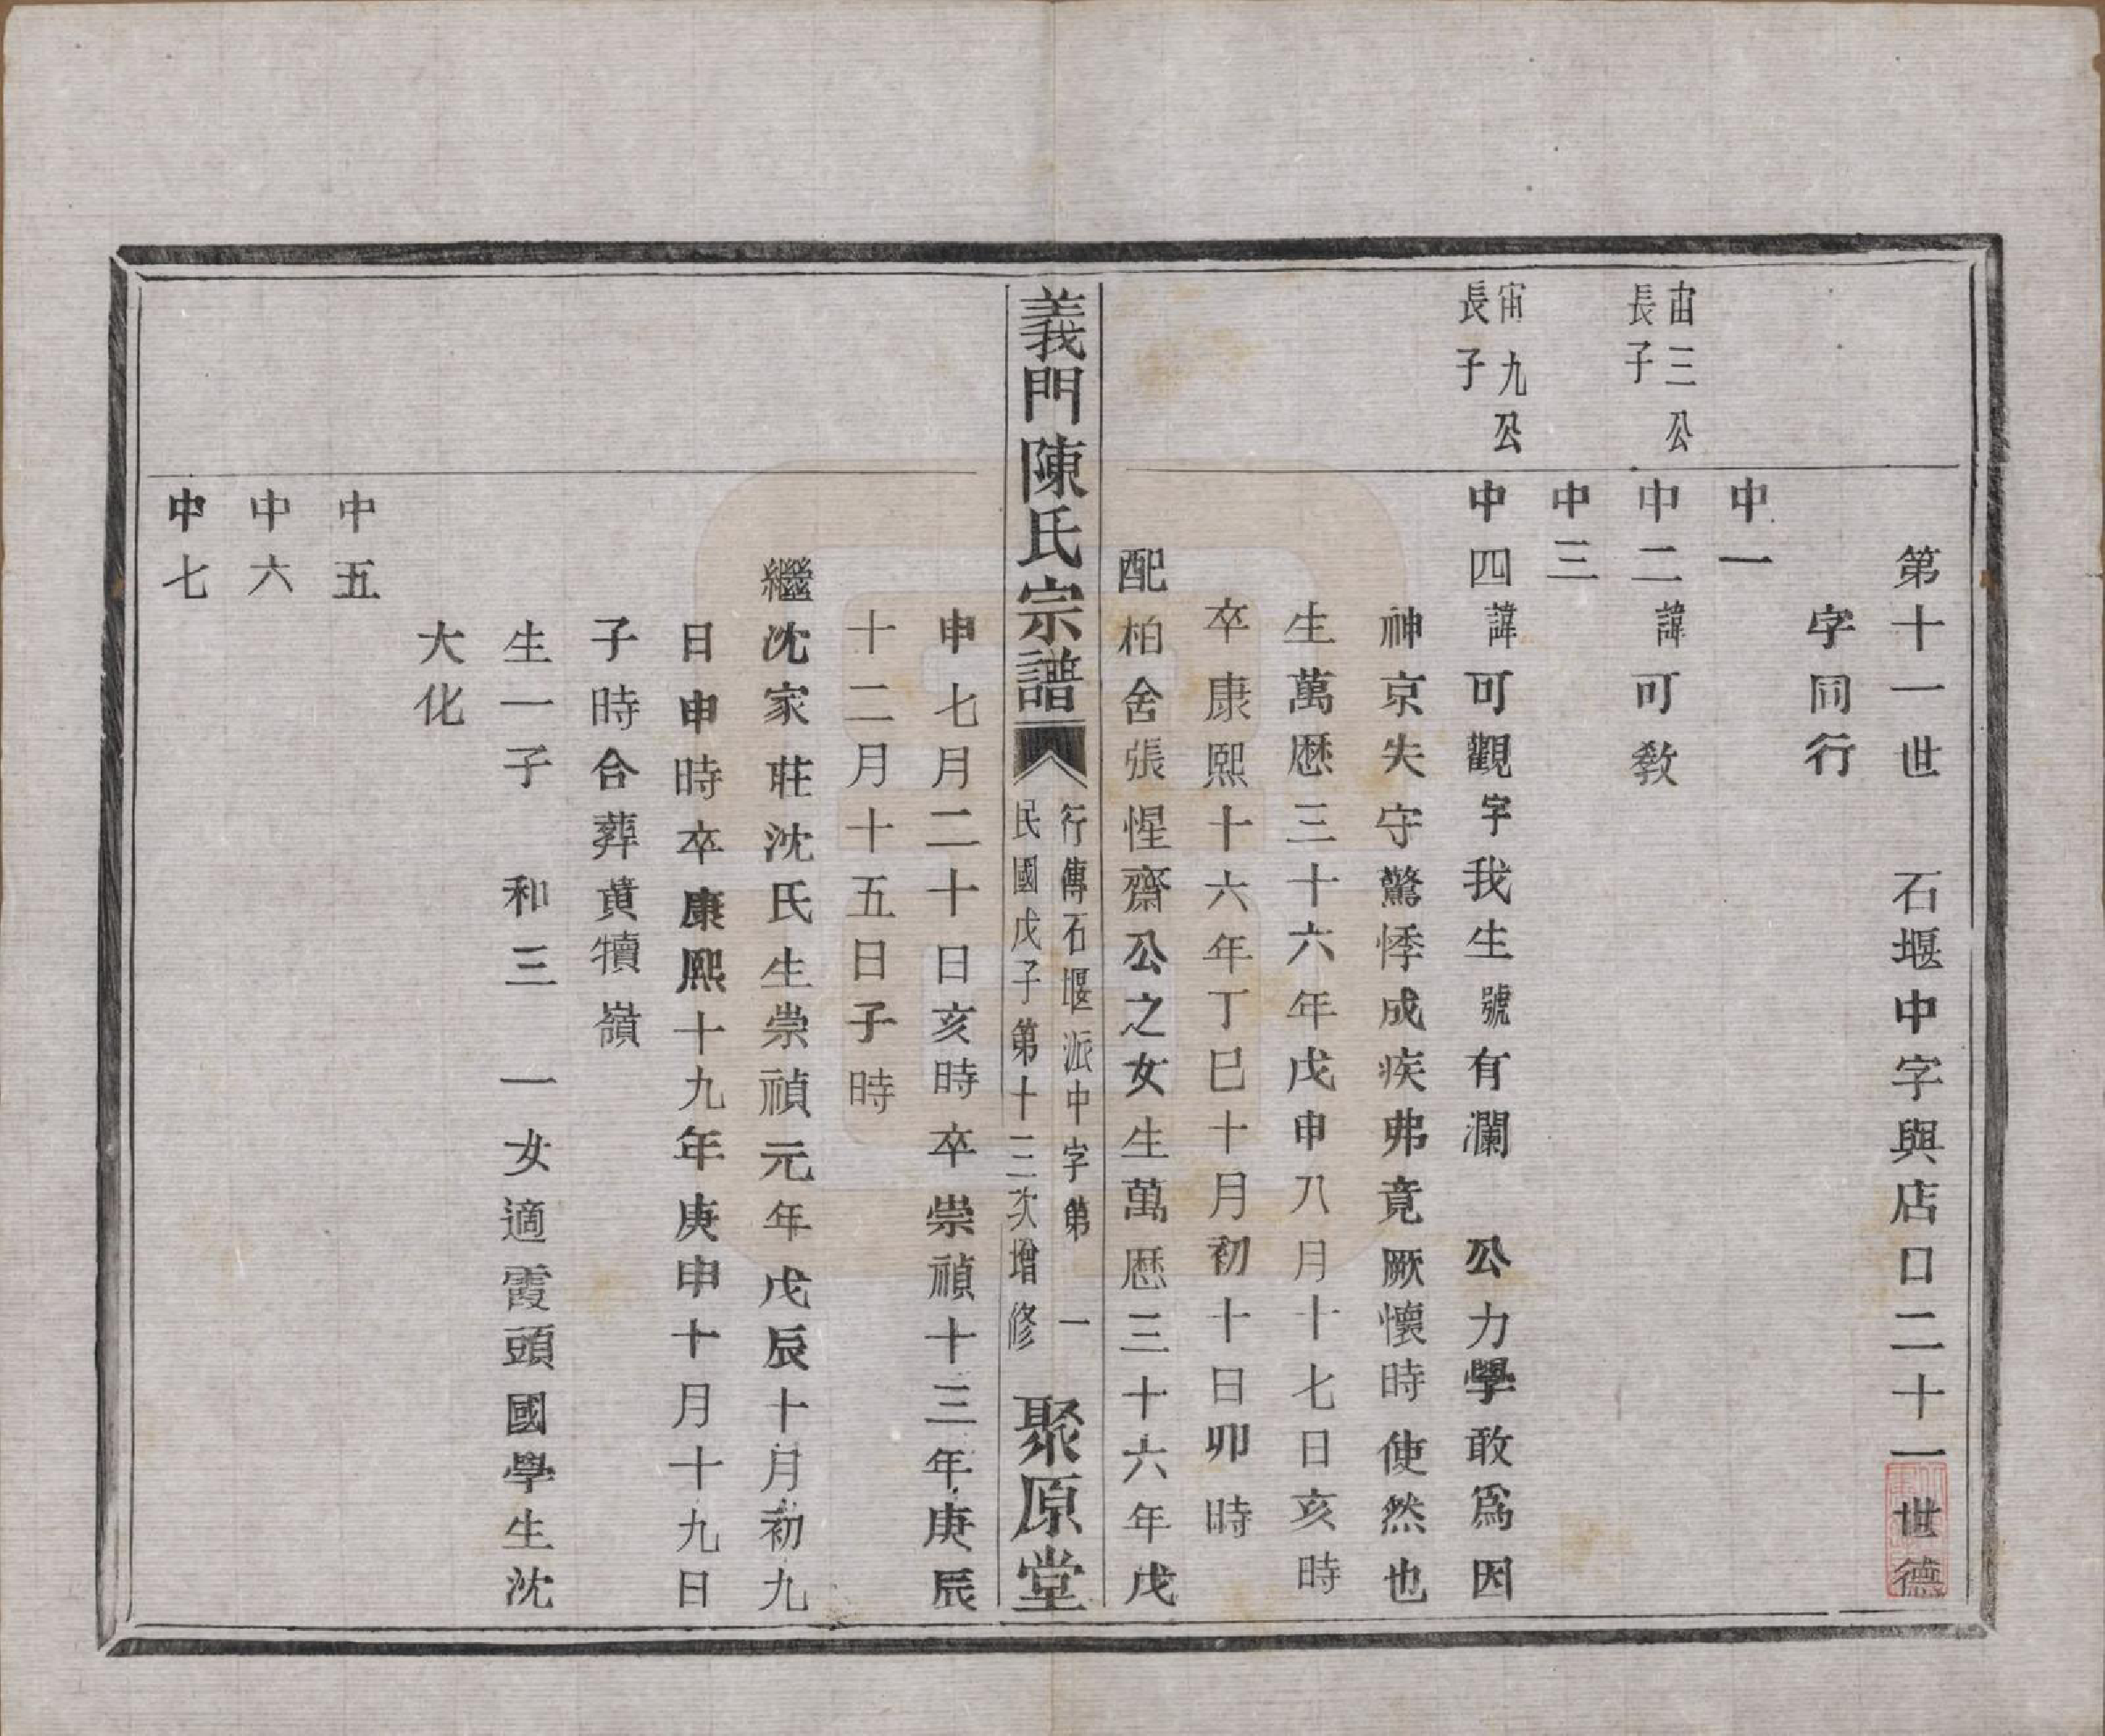 第十一世　石堰中字與店口二十一世德
字同行
中一
宙三公
長子
中二諱可教
中三
宙九公
長子
中四諱可觀字我生號有瀾　公力學敢爲因
神京失守驚悸成疾弗竟厥懷時使然也
生萬厯三十六年戊申八月十七日亥時
卒康熙十六年丁巳十月初十日卯時
配柏舍張惺齋公之女生萬厯三十六年戊
義門陳氏宗譜
行傳石堰派中字第　一
民國戊子第十三次增修
聚原堂
申七月二十日亥時卒崇禎十三年庚辰
十二月十五日子時
繼沈家莊沈氏生崇禎元年戊辰十月初九
日申時卒康熙十九年庚申十月十九日
子時合葬黄犢嶺
生一子　和三　一女適霞頭國學生沈
大化
中五
中六
中七